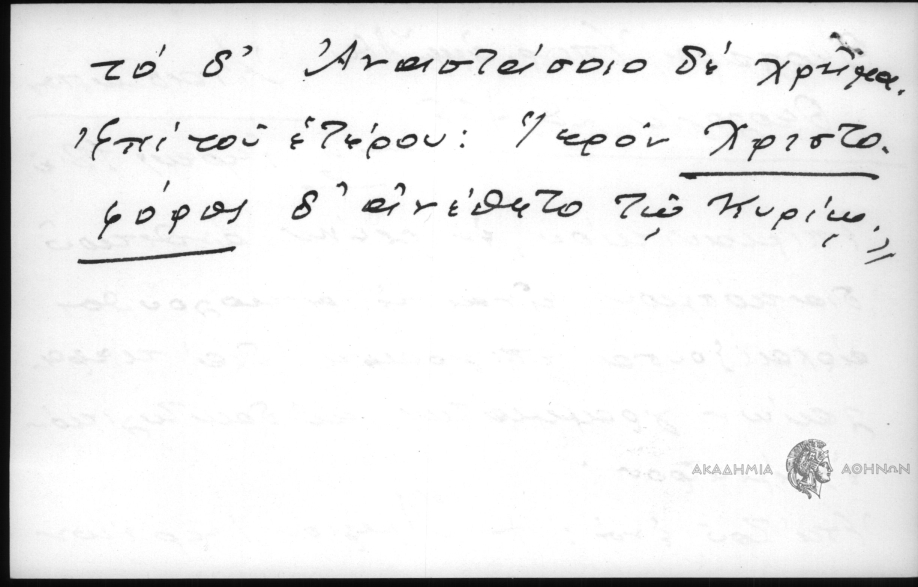 τό δ' Ἀναστάσοιο δέ χρῆμα.
Ἐπί τοῦ ἑτέρου: Ἱερόν Χριστο.
φόρος δ' ἀνέθετο τῷ Κυρίῳ."
ΑΚΑΔΗΜΙΑ ΑΘΗΝΩΝ